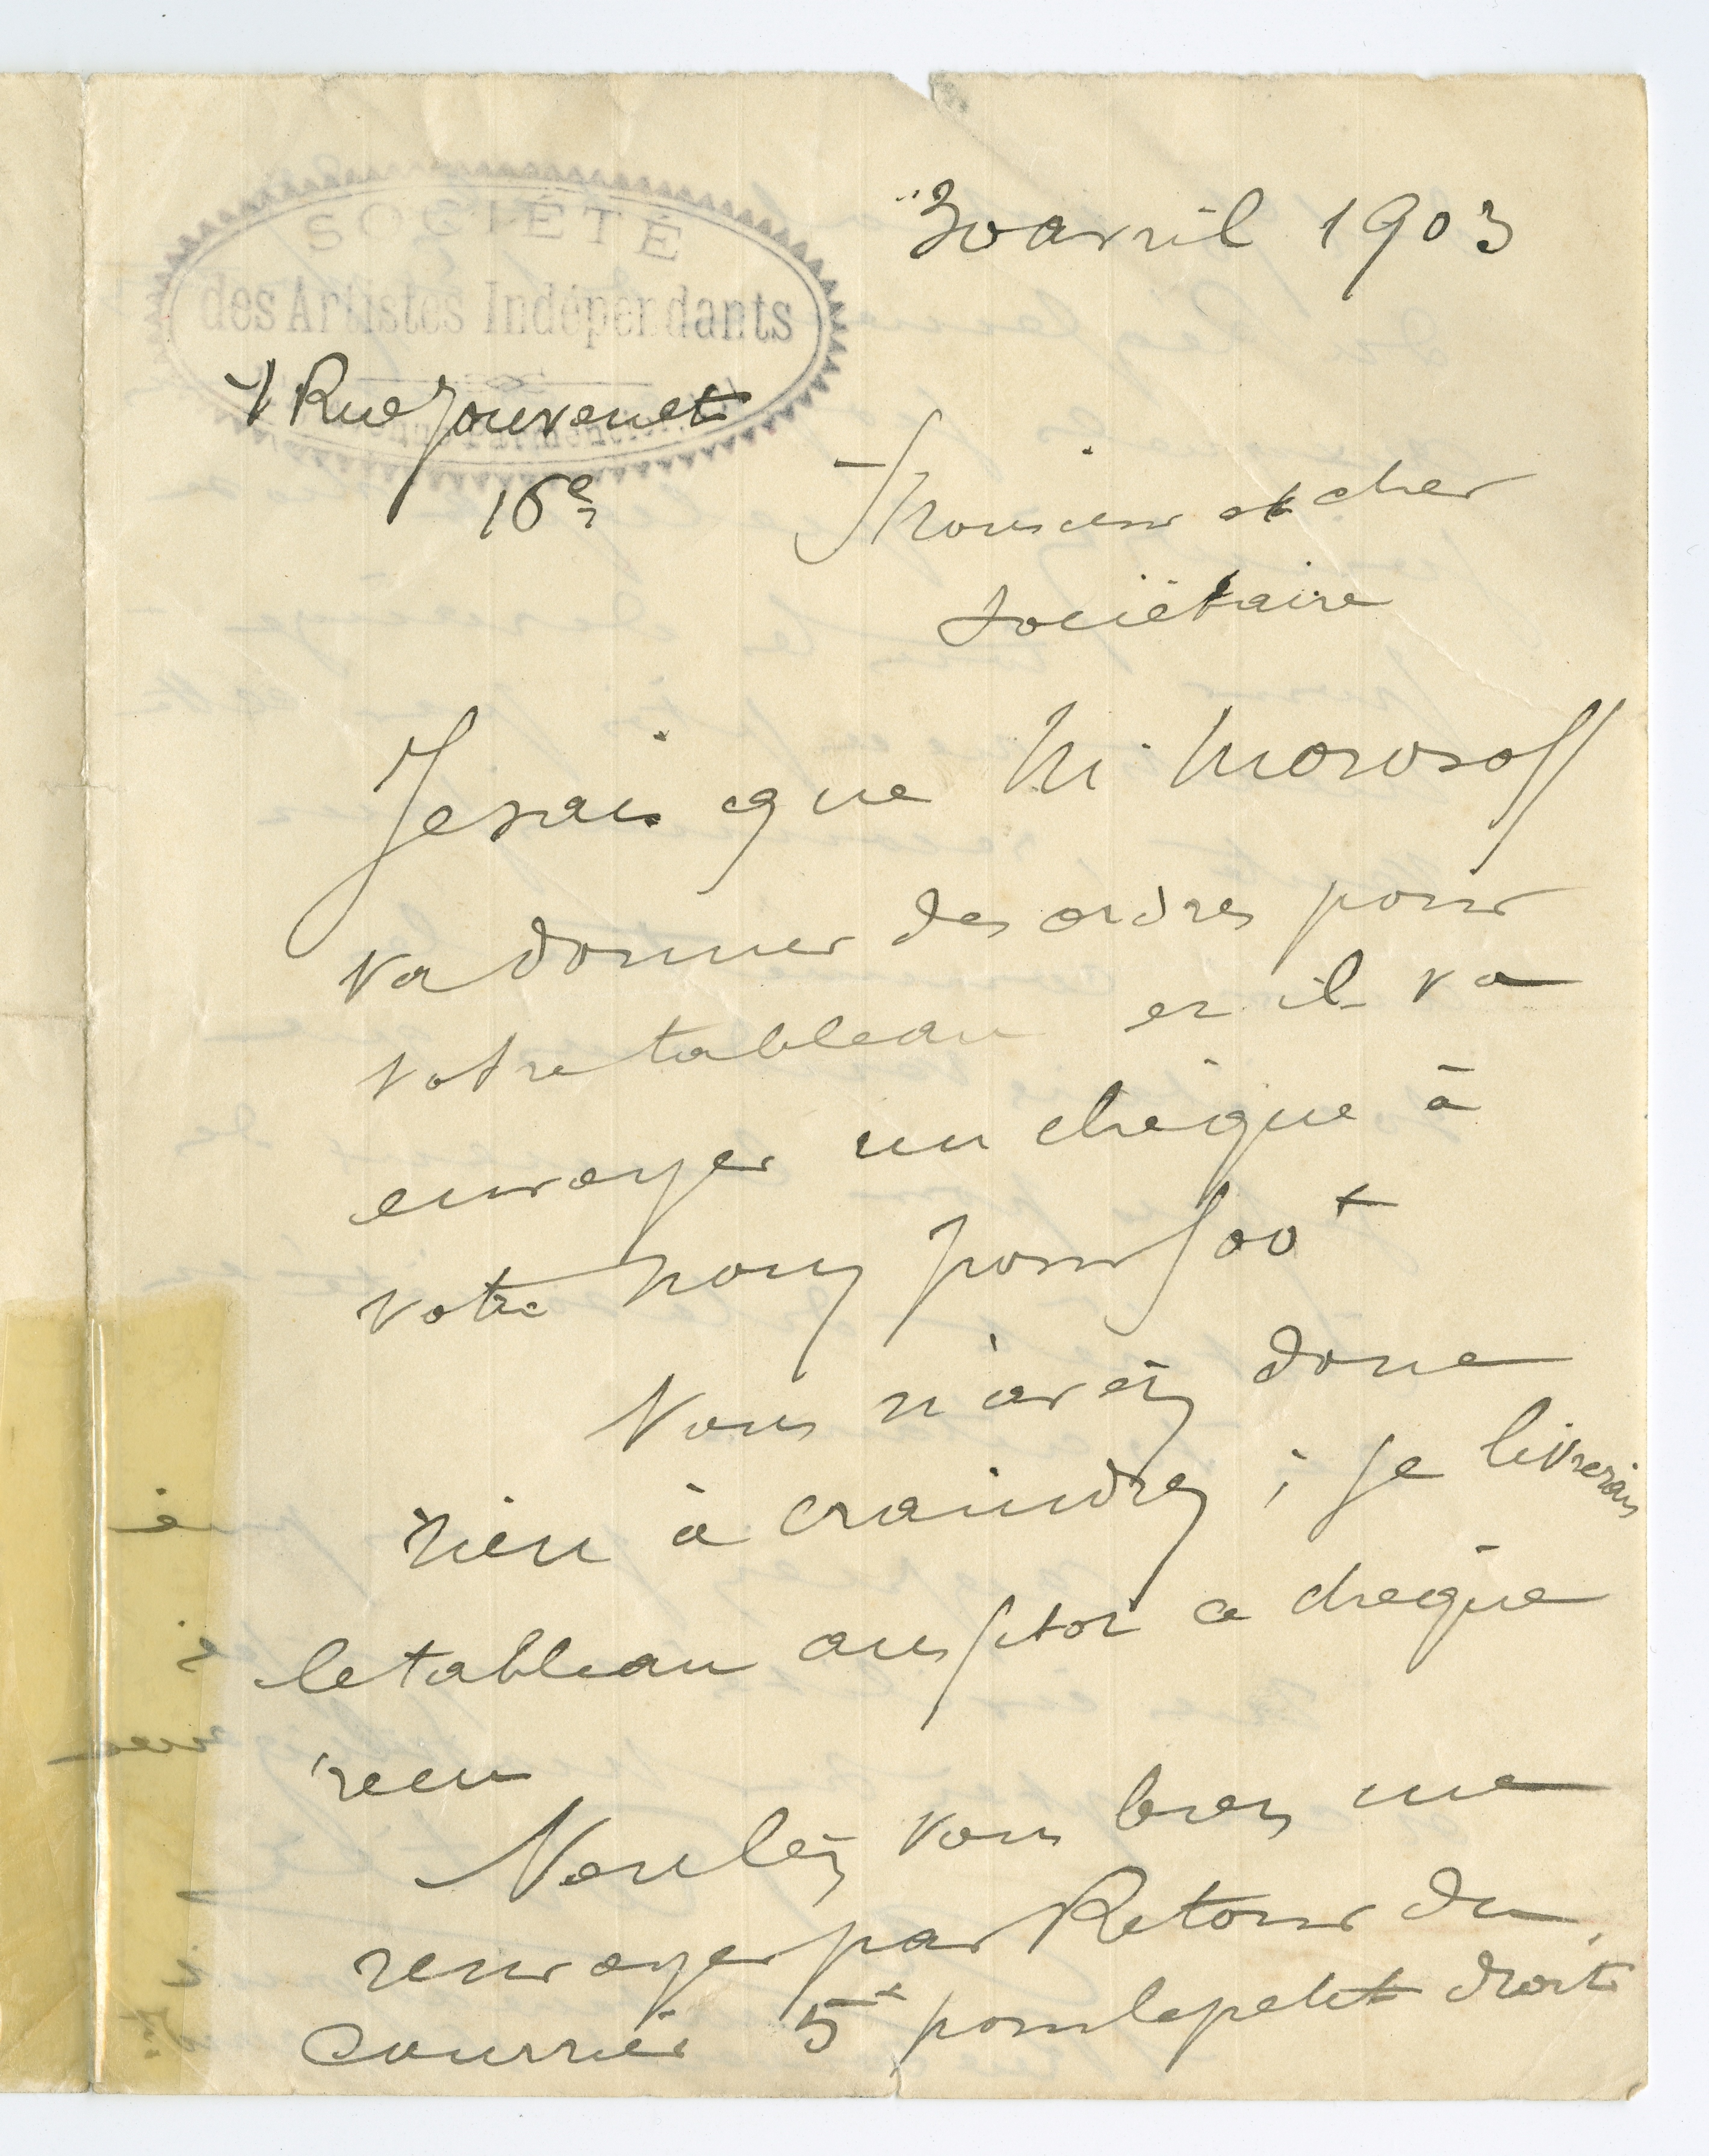 30 avril 1903
SOCIÉTÉ
des Artistes Indépendants
7 Rue Jouvenet
16e
Monsieur et cher
sociétaire
Je sais que M. Morosoff
va donner des ordres pour
votre tableau et il va
envoyer un chèque à
votre nom pour 500 f
Vous n'avez donc
rien à craindre ; je livrerais
le tableau aussitot ce chèque
recu
Voulez vous bien me
renvoyer par Retour du
Courrier 5 f pour le petit droit